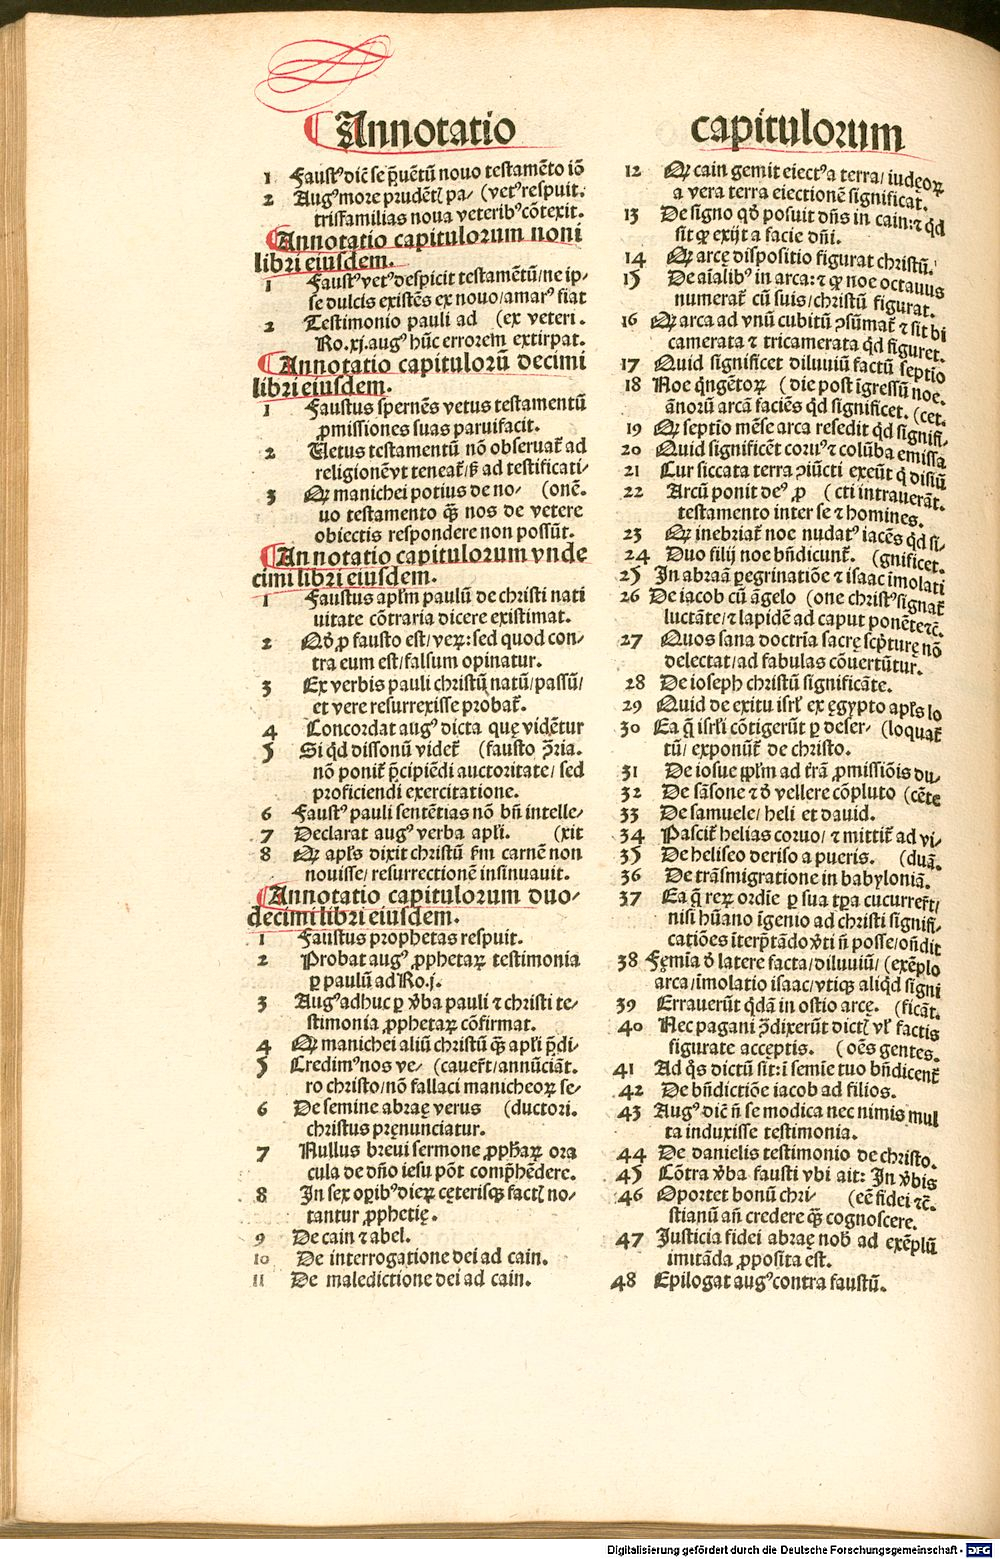 Annotatio capitulorum
1 Faustꝰ diẽ se p̃uẽtũ nouo testamẽto iõ
2 Augꝰ more prudẽtꝭ pa- (vetꝰ respuit.
trisfamilias noua veteribꝰ cõtexit.
Annotatio capitulorum noni
libri eiusdem.
1 Faustꝰ vetꝰ despicit testamẽtũ/ne ip-
se dulcis existẽs ex nouo/amarꝰ fiat
2 Testimonio pauli ad (ex veteri.
Ro.xj.augꝰ hũc errorem extirpat.
Annotatio capitulorũ decimi
libri eiusdem.
1 Faustus spernẽs vetus testamentũ
ꝓmissiones suas paruifacit.
2 Uetus testamentũ nõ obseruat̃ ad
religionẽ vt teneat̃/sꝫ ad testificati-
3 Qꝛ manichei potius de no- (onẽ.
uo testamento qꝫ̃ nos de vetere
obiectis respondere non possũt.
Annotatio capitulorum vnde
cimi libri eiusdem.
1 Faustus apl̃m paulũ de christi nati
uitate cõtraria dicere existimat.
2 Qð ꝓ fausto est/veꝝ: sed quod con-
tra eum est/falsum opinatur.
3 Ex verbis pauli christũ natũ/passũ/
et vere resurrexisse probat̃.
4 Concordat augꝰ dicta quę vidẽtur
5 Si qd̃ dissonũ videt̃ (fausto ꝯ̃ria.
nõ ponit̃ p̃cipiẽdi auctoritate/ sed
proficiendi exercitatione.
6 Faustꝰ pauli sentẽtias nõ bñ intelle-
7 Declarat augꝰ verba apl̃i. (xit
8 Qꝛ apl̃s dixit christũ ẜm carnẽ non
nouisse/ resurrectionẽ insinuauit.
Annotatio capitulorum duo-
decimi libri eiusdem.
1 Faustus prophetas respuit.
2 Probat augꝰ ꝓphetaꝝ testimonia
ꝑ paulũ ad Ro.j.
3 Augꝰ adhuc ꝑ v̓ba pauli ⁊ christi te-
stimonia ꝓphetaꝝ cõfirmat.
4 Qꝛ manichei aliũ christũ qꝫ̃ apl̃i p̃di-
5 Credimꝰ nos ve- (cauer̃t/annũciãt.
ro christo/nõ fallaci manicheoꝝ se-
6 De semine abraę verus (ductori.
christus pręnunciatur.
7 Nullus breui sermone ꝓph̃aꝝ ora
cula de dño iesu põt comp̃hẽdere.
8 In sex oꝑibꝰ dieꝝ cęterisqꝫ factꝭ no-
tantur ꝓphetię.
9 De cain ⁊ abel.
10 De interrogatione dei ad cain.
11 De maledictione dei ad cain.
12 Qꝛ cain gemit eiectꝰ a terra/ iudęoꝝ
a vera terra eiectionẽ significat.
13 De signo qð posuit dñs in cain:⁊ qd̃
sit ꝙ exijt a facie dñi.
14 Qꝛ arcę dispositio figurat christũ.
15 De aĩalibꝰ in arca:⁊ ꝙ noe octauus
numerat̃ cũ suis/christũ figurat.
16 Qꝛ arca ad vnũ cubitũ ꝯsũmat̃ ⁊ sit bi
camerata ⁊ tricamerata qd̃ figuret.
17 Quid significet diluuiũ factũ septĩo
18 Noe qñgẽtoꝝ (die post ĩgressũ noe.
ãnorũ arcã faciẽs qd̃ significet. (cet.
19 Qꝛ septĩo mẽse arca resedit qd̃ signifi-
20 Quid significẽt coruꝰ ⁊ colũba emissa
21 Cur siccata terra ꝯiũcti exeũt q̃ disiũ
22 Arcũ ponit deꝰ ꝓ (cti intrauerãt.
testamento inter se ⁊ homines.
23 Qꝛ inebriat̃ noe nudatꝰ iacẽs qd̃ si-
24 Duo filij noe bñdicunt̃. (gnificet.
25 In abraã ꝑegrinatiõe ⁊ isaac ĩmolati
26 De iacob cũ ãgelo (one christꝰ signat̃
luctãte/⁊ lapidẽ ad caput ponẽte⁊c̃.
27 Quos sana doctrĩa sacrę scp̃turę nõ
delectat/ad fabulas cõuertũtur.
28 De ioseph christũ significãte.
29 Quid de exitu isrl̃ ex ęgypto apl̃s lo
30 Ea q̃ isrl̃i cõtigerũt ꝑ deser- (loquat̃
tũ/ exponũt̃ de christo.
31 De iosue pp̃lm ad tr̃ã ꝓmissiõis du-
32 De sãsone ⁊ d̓ vellere cõpluto (cẽte
33 De samuele/ heli et dauid.
34 Pascit̃ helias coruo/ ⁊ mittit̃ ad vi-
35 De heliseo deriso a pueris. (duã.
36 De trãsmigratione in babyloniã.
37 Ea q̃ reꝝ ordĩe ꝑ sua tp̃a cucurrer̃t/
nisi hũano ĩgenio ad christi signifi-
catiões ĩterp̃tãdo v̓ti ñ posse/oñdit
38 Fęmĩa d̓ latere facta/diluuiũ/ (exẽplo
arca/ĩmolatio isaac/vtiqꝫ aliqd̃ signi
39 Errauerũt qd̃ã in ostio arcę. (ficãt.
40 Nec pagani ꝯ̃dixerũt dictꝭ vl̃ factis
figurate acceptis. (oẽs gentes.
41 Ad q̃s dictũ sit: ĩ semĩe tuo bñdicent̃
42 De bñdictiõe iacob ad filios.
43 Augꝰ diẽ ñ se modica nec nimis mul
ta induxisse testimonia.
44 De danielis testimonio de christo.
45 Cõtra v̓ba fausti vbi ait: In v̓bis
46 Oportet bonũ chri- (eẽ fidei ⁊c̃.
stianũ añ credere qꝫ̃ cognoscere.
47 Justicia fidei abraę nob̃ ad exẽplũ
imitãda ꝓposita est.
48 Epilogat augꝰ contra faustũ.
Digitalisierung gefördert durch die Deutsche Forschungsgemeinschaft - DFG